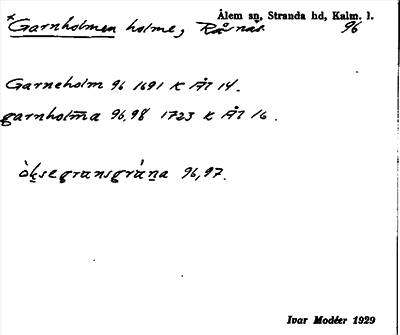 Ålem sn, Stranda hd, Kalm. l.
*Garnholmen holme, Råsnäs. 96
Garneholm 96 1691 K Ål 14.
garnholma 96,98 1723 K Ål 16.
96,97.
Ivar Modéer 1929